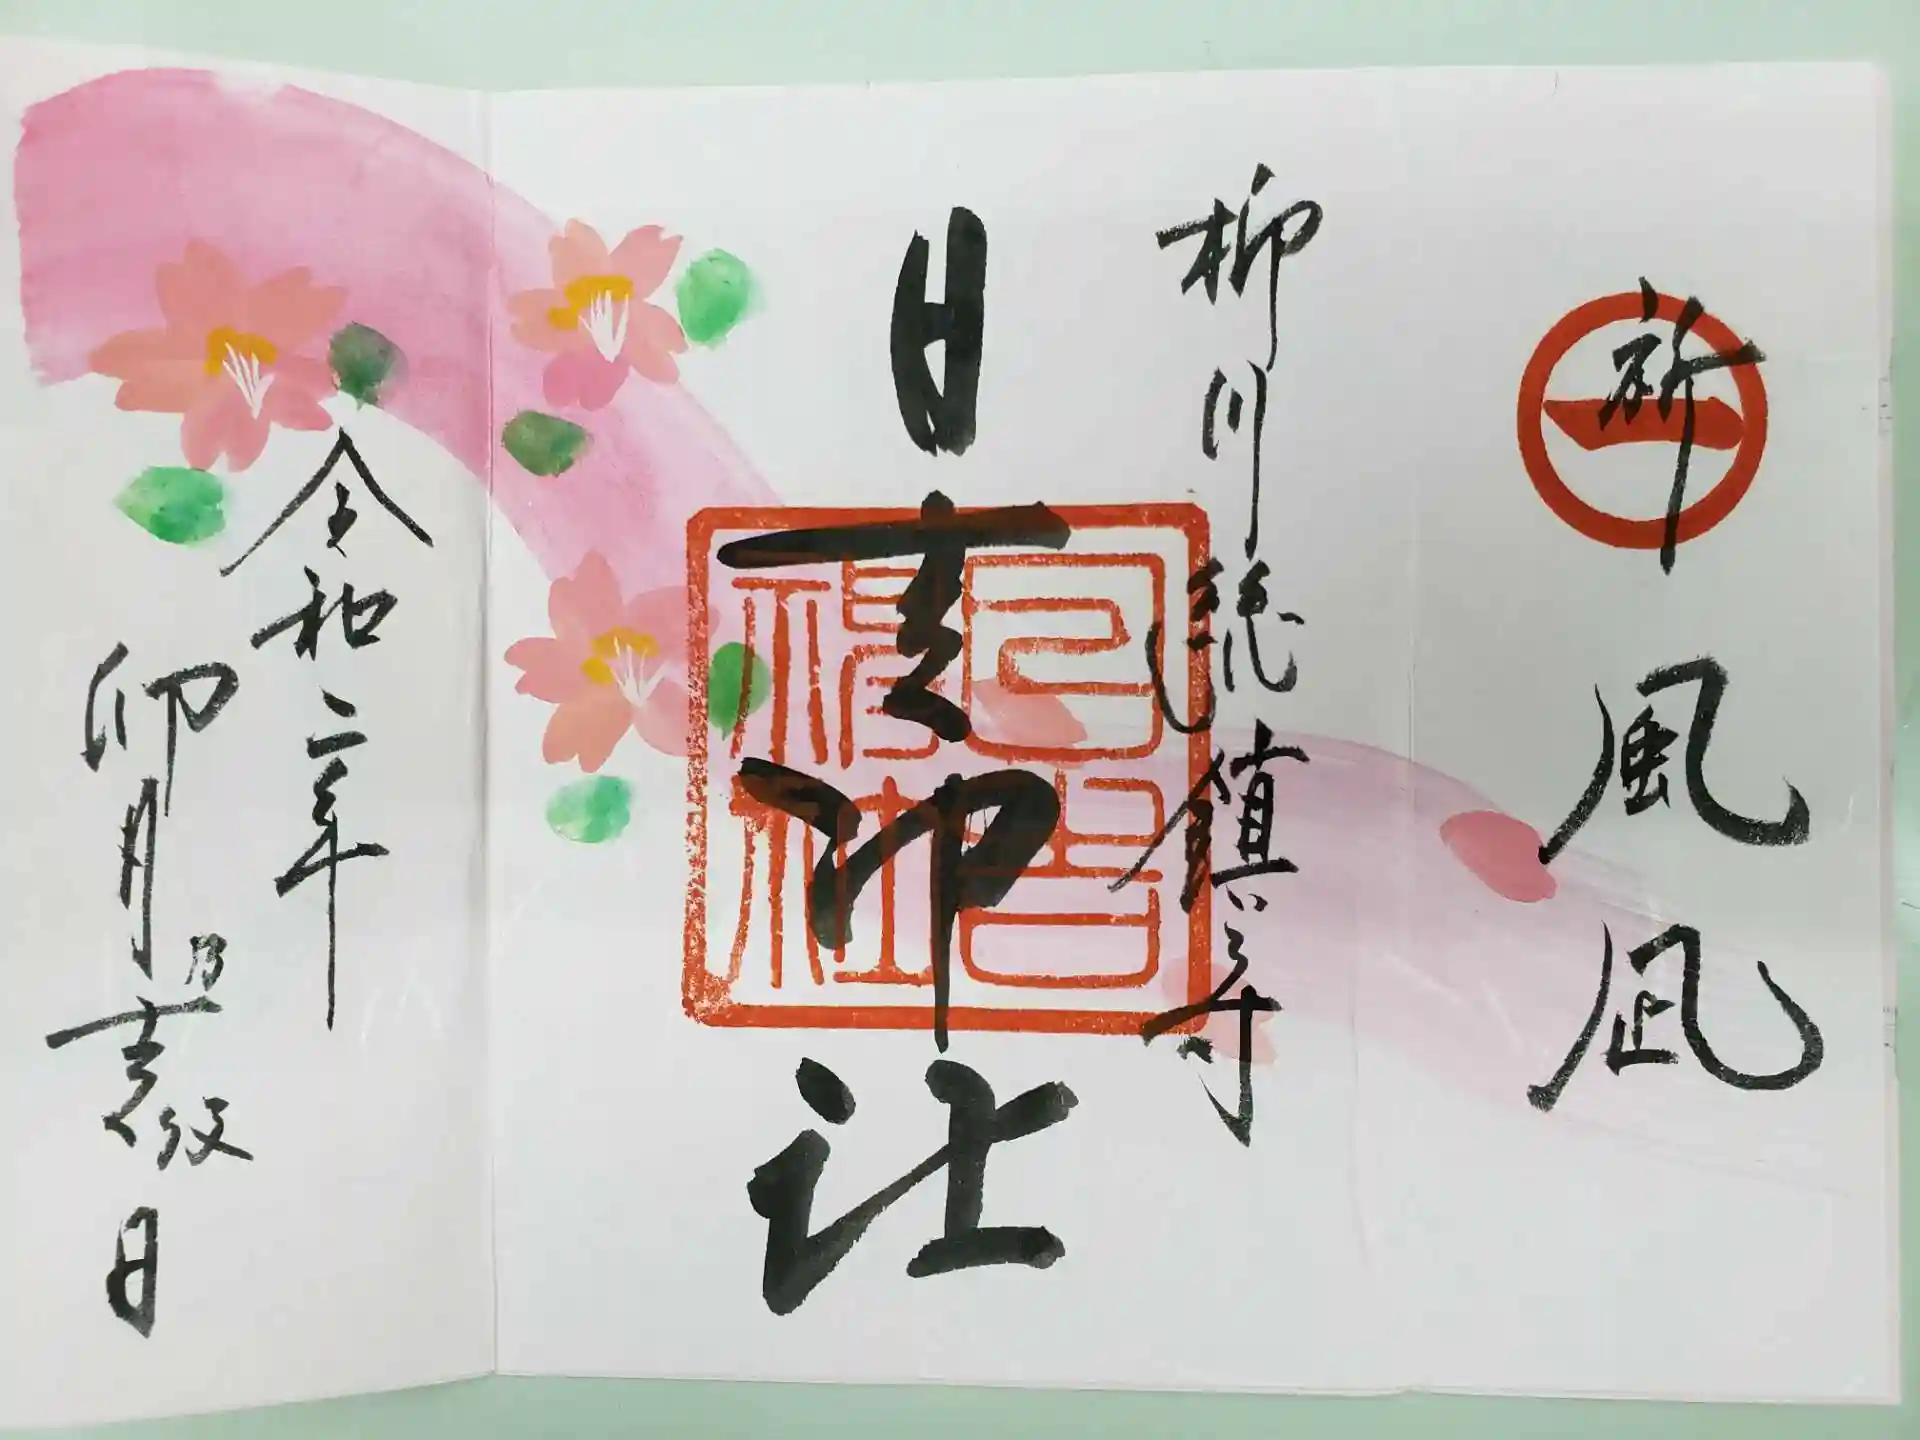 祈
風凪
柳川総鎮守
日吉神社
令和二年
卯月乃吉祥日
日吉神社